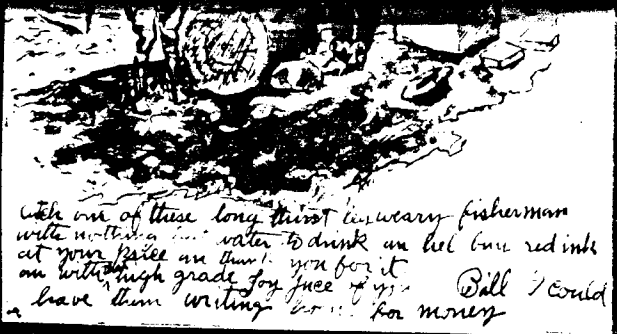 of these long thirst weary fisherman
with nothing but water to drink an hel buy red ink
at your price an thank you for it
an with that high grade Joy juce of yrs Bill I could
have them writing home for money